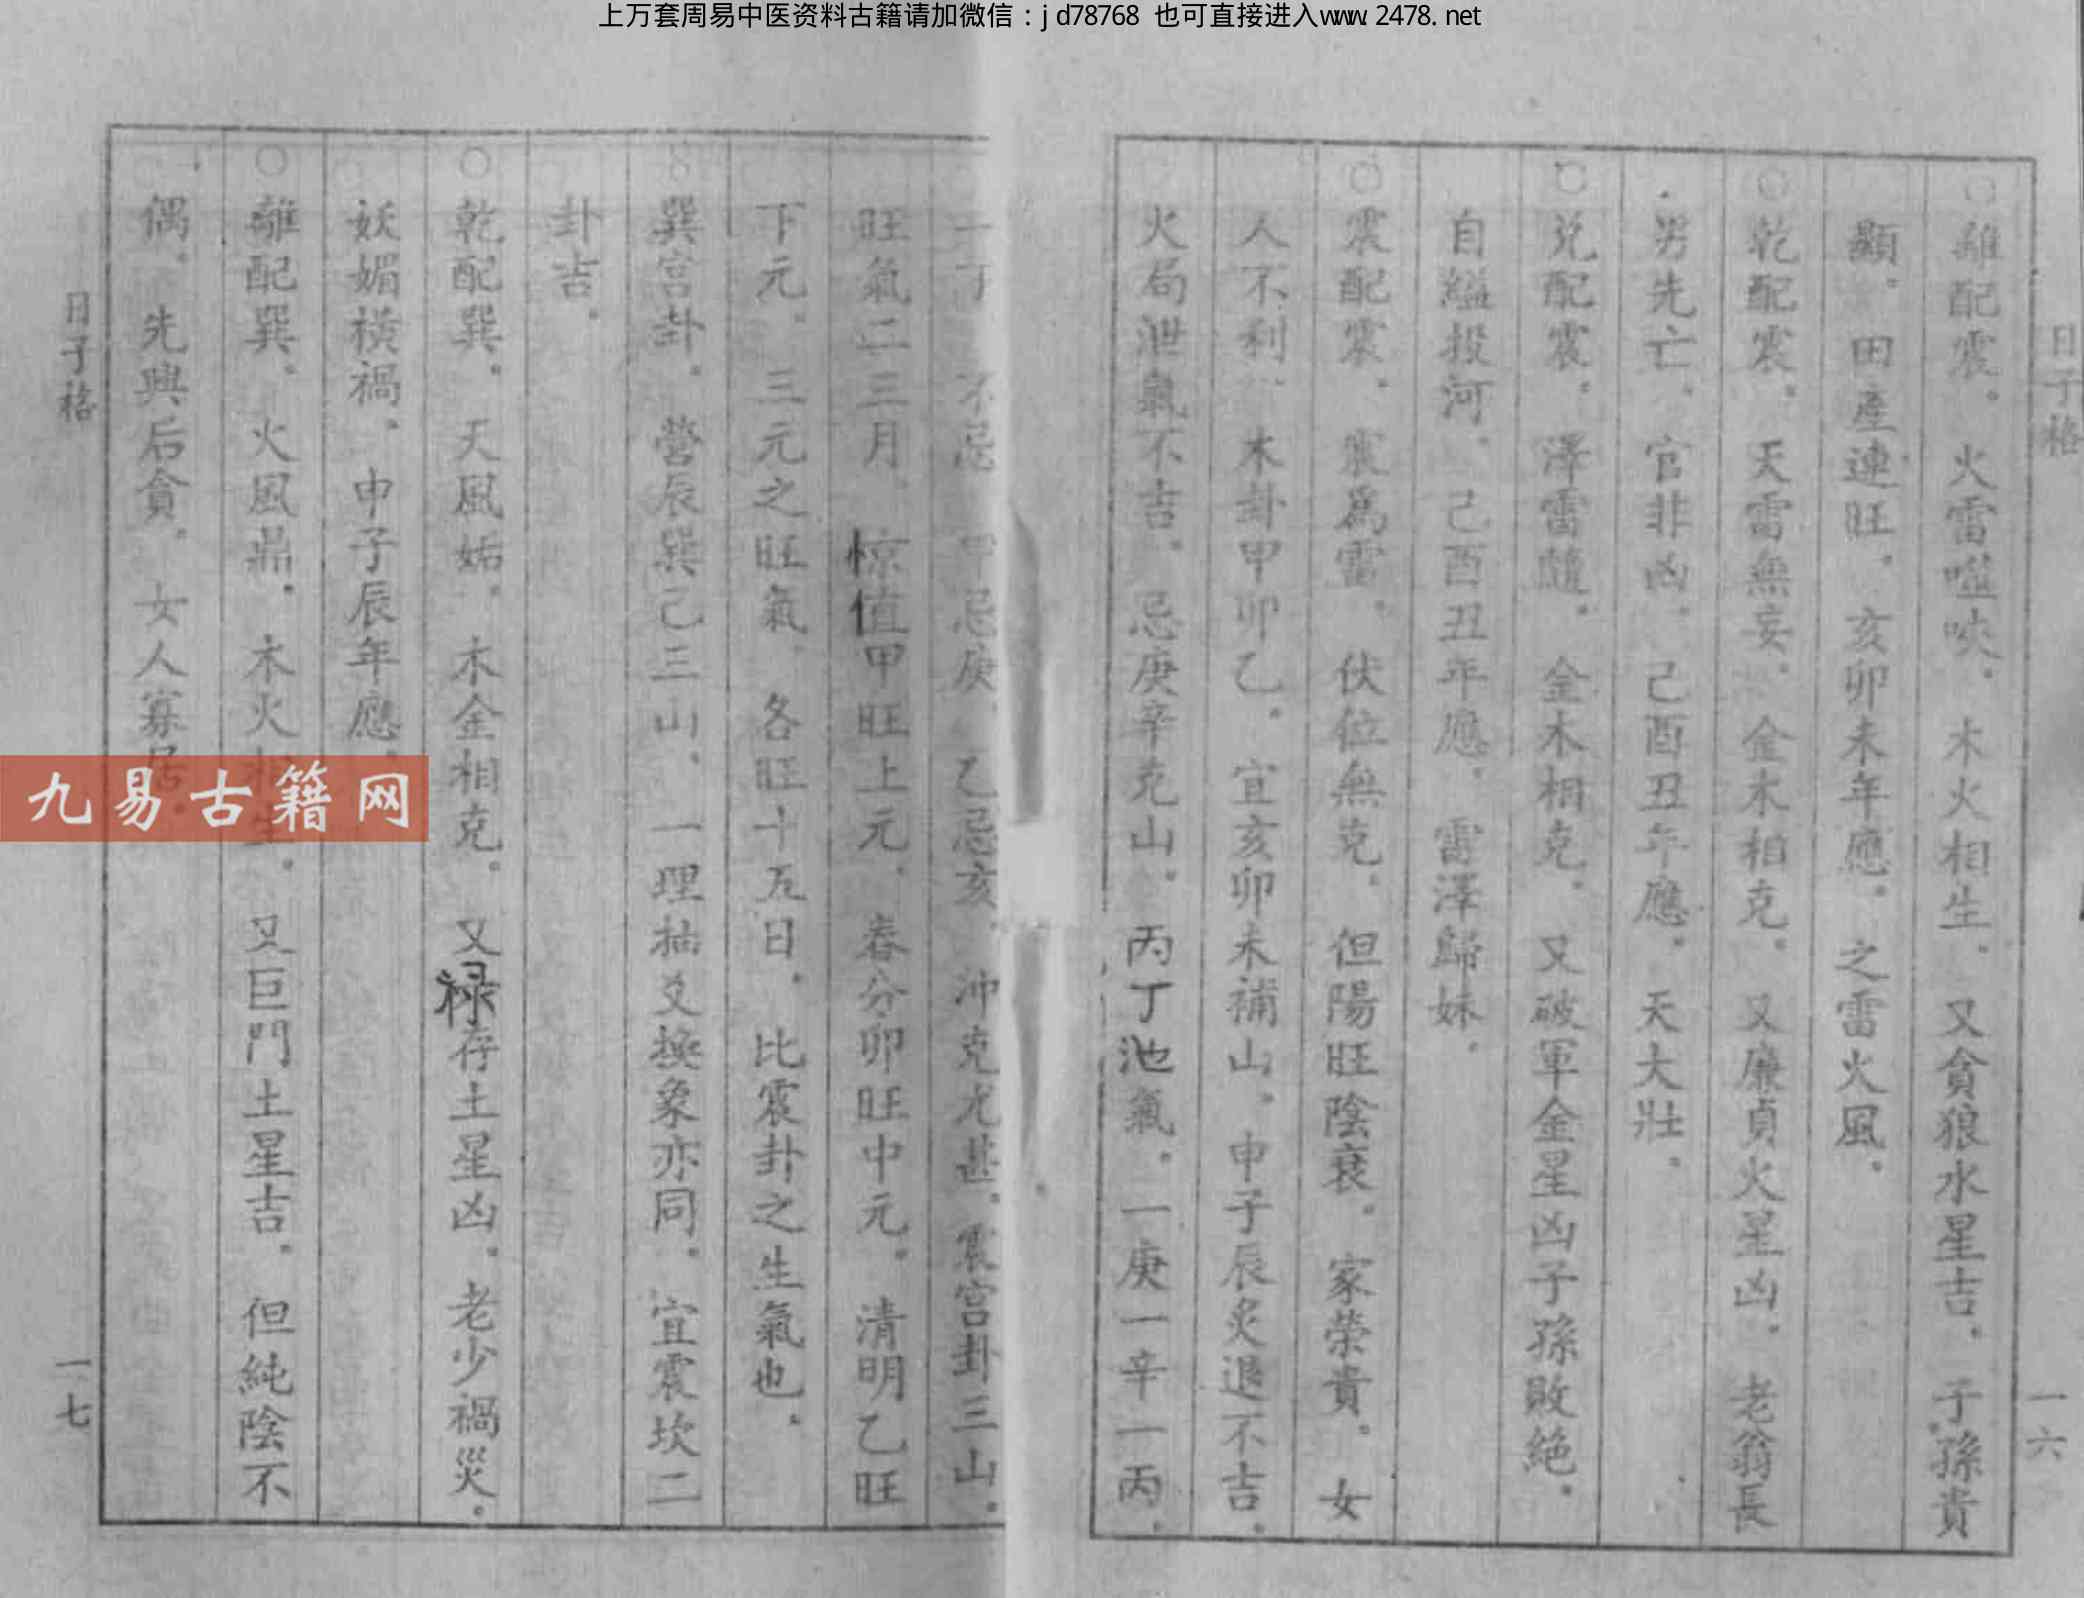 上万套周易中医资料古籍请加微信：jd78768 也可直接进入www.2478.net
日子格
一六
○離配震。火雷噬嗑。木火相生。又貪狼水星吉。子孫貴
顯。田產連旺。亥卯未年應。之雷火風。
○乾配震。天雷無妄。金木相克。又廉貞火星凶。老翁長
男先亡。官非凶。己酉丑年應。天大壯。
○兌配震。澤雷隨。金木相克。又破軍金星凶子孫敗絕。
自縊投河。己酉丑年應。雷澤歸妹。
○震配震。震爲雷。伏位無克。但陽旺陰衰。家榮貴。女
人不利。木卦甲卯乙。宜亥卯未補山。申子辰炙退不吉。
火局泄氣不吉。忌庚辛克山。丙丁池氣。一庚一辛一丙。
一丁 不忌 甲忌庚。乙忌亥。沖克尤甚。震宮卦三山。
旺氣二三月。惊值甲旺上元。春分卯旺中元。清明乙旺
下元。三元之旺氣。各旺十五日。比震卦之生氣也。
巽宮卦。營辰巽己三山。一理抽爻換象亦同。宜震坎二
卦吉。
○乾配巽。天風姤。木金相克。又禄存土星凶。老少禍災。
妖媚橫禍。申子辰年應。
○離配巽。火風鼎。木火相生。又巨門土星吉。但純陰不
偶。先興后貪。女人寡居。
日子格
一七
九易古籍网